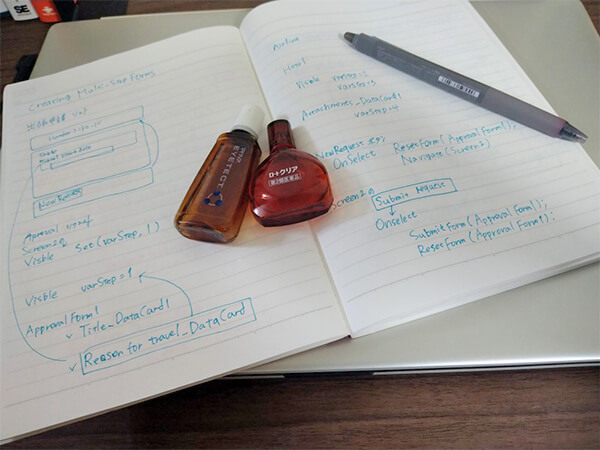 Creating Multi-Step Forms
New Request
Approval リスト
Screen2の
Visible Set(varStep, 1)
Visible varStep = 1
Approval Form1
v Title_DataCard1
v Reason for travel_DataCard
Airline
Hotel
Visible varStep=2
varStep=3
Attachments_DataCard1
varStep=4
New Request ボタン
OnSelect ResetForm(Approval Form1);
Navigate(Screen2)
Screen2の
Submit request
Onselect
SubmitForm(Approval Form1);
ResetForm(Approval Form1);
EVETECT
ロートクリア
第2類医薬品
SE